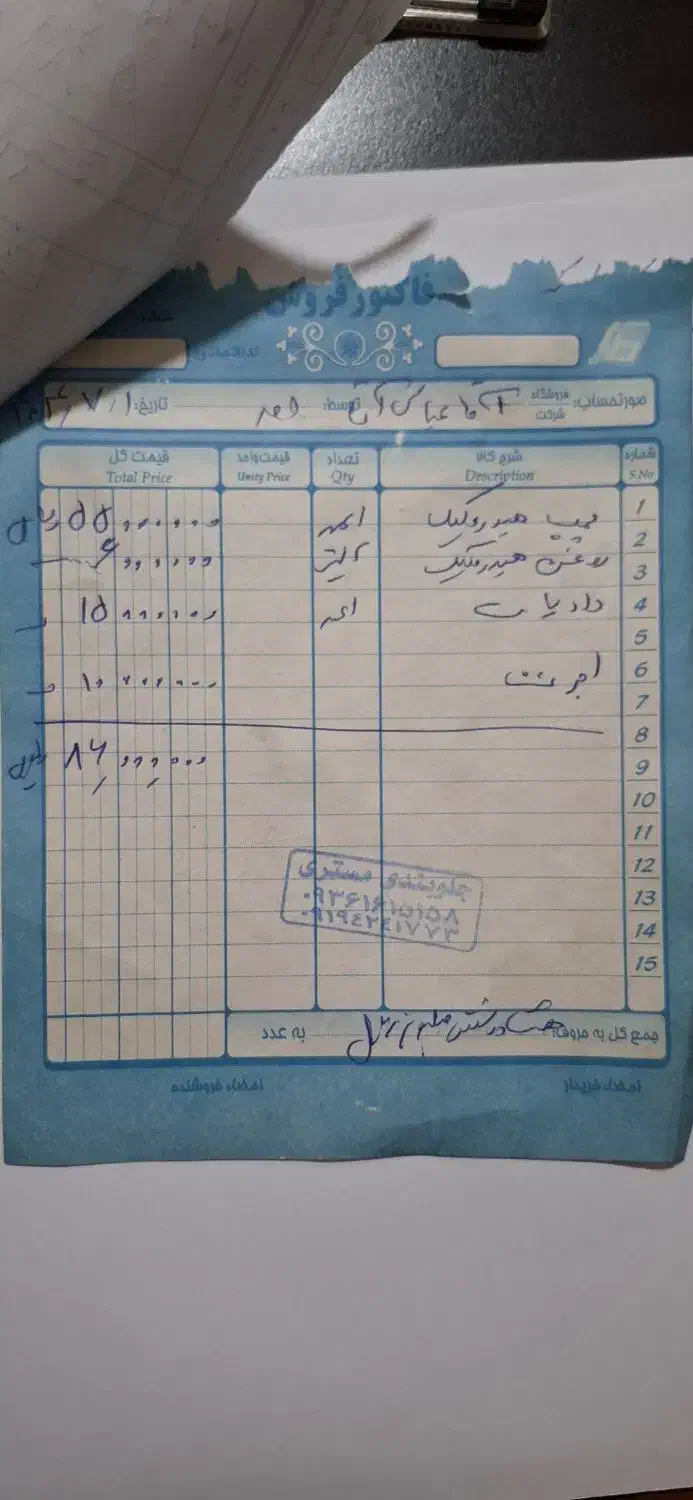 فاکتور فروش
شماره
کد اقتصادی
صورتحساب: فروشگاه شرکت آقا عباس توسط: تاریخ: ۱/۷/
شماره S.No شرح کالا Description تعداد Qty قیمت واحد Unity Price قیمت کل Total Price
1 پمپ هیدرولیک ۵۵۰۰۰۰۰۰
2
3 روغن هیدرولیک ۶۰۰۰۰۰۰
4 ۱۵۰۰۰۰۰۰
5
6 اجرت ۱۰۰۰۰۰۰۰
7
8
9 ۸۶,۰۰۰,۰۰۰
10
11
12
13
14
15
جلوبندی مستری
۰۹۳۶۱۶۱۵۱۵۸
۰۹۱۹۴۲۴۱۷۷۳
جمع کل به حروف: هشتاد و شش میلیون ریال به عدد
امضاء خریدار امضاء فروشنده